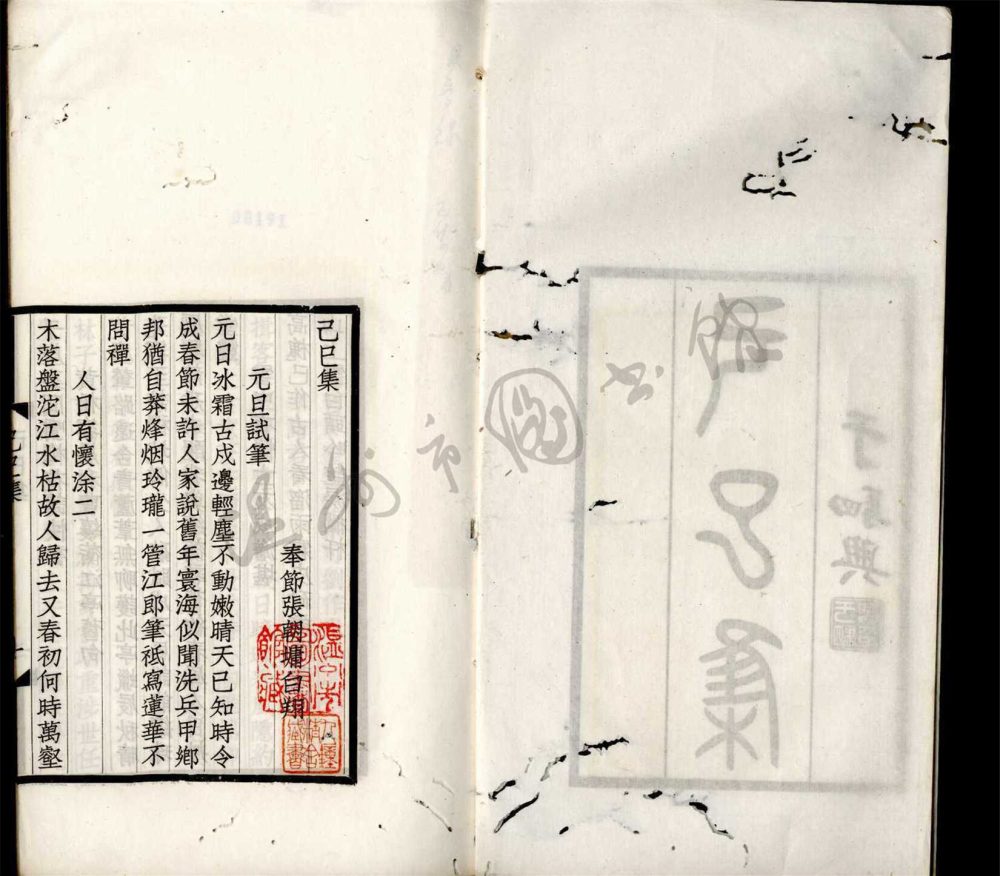 己巳集
奉節張朝墉白翔
元旦試筆
元日冰霜古戍邊輕塵不動嫩晴天已知時令
成春節未許人家說舊年寰海似聞洗兵甲鄉
邦猶自莽烽烟玲瓏一管江郎筆祇寫蓮華不
問禪
人日有懷涂二
木落盤沱江水枯故人歸去又春初何時萬壑
己巳集